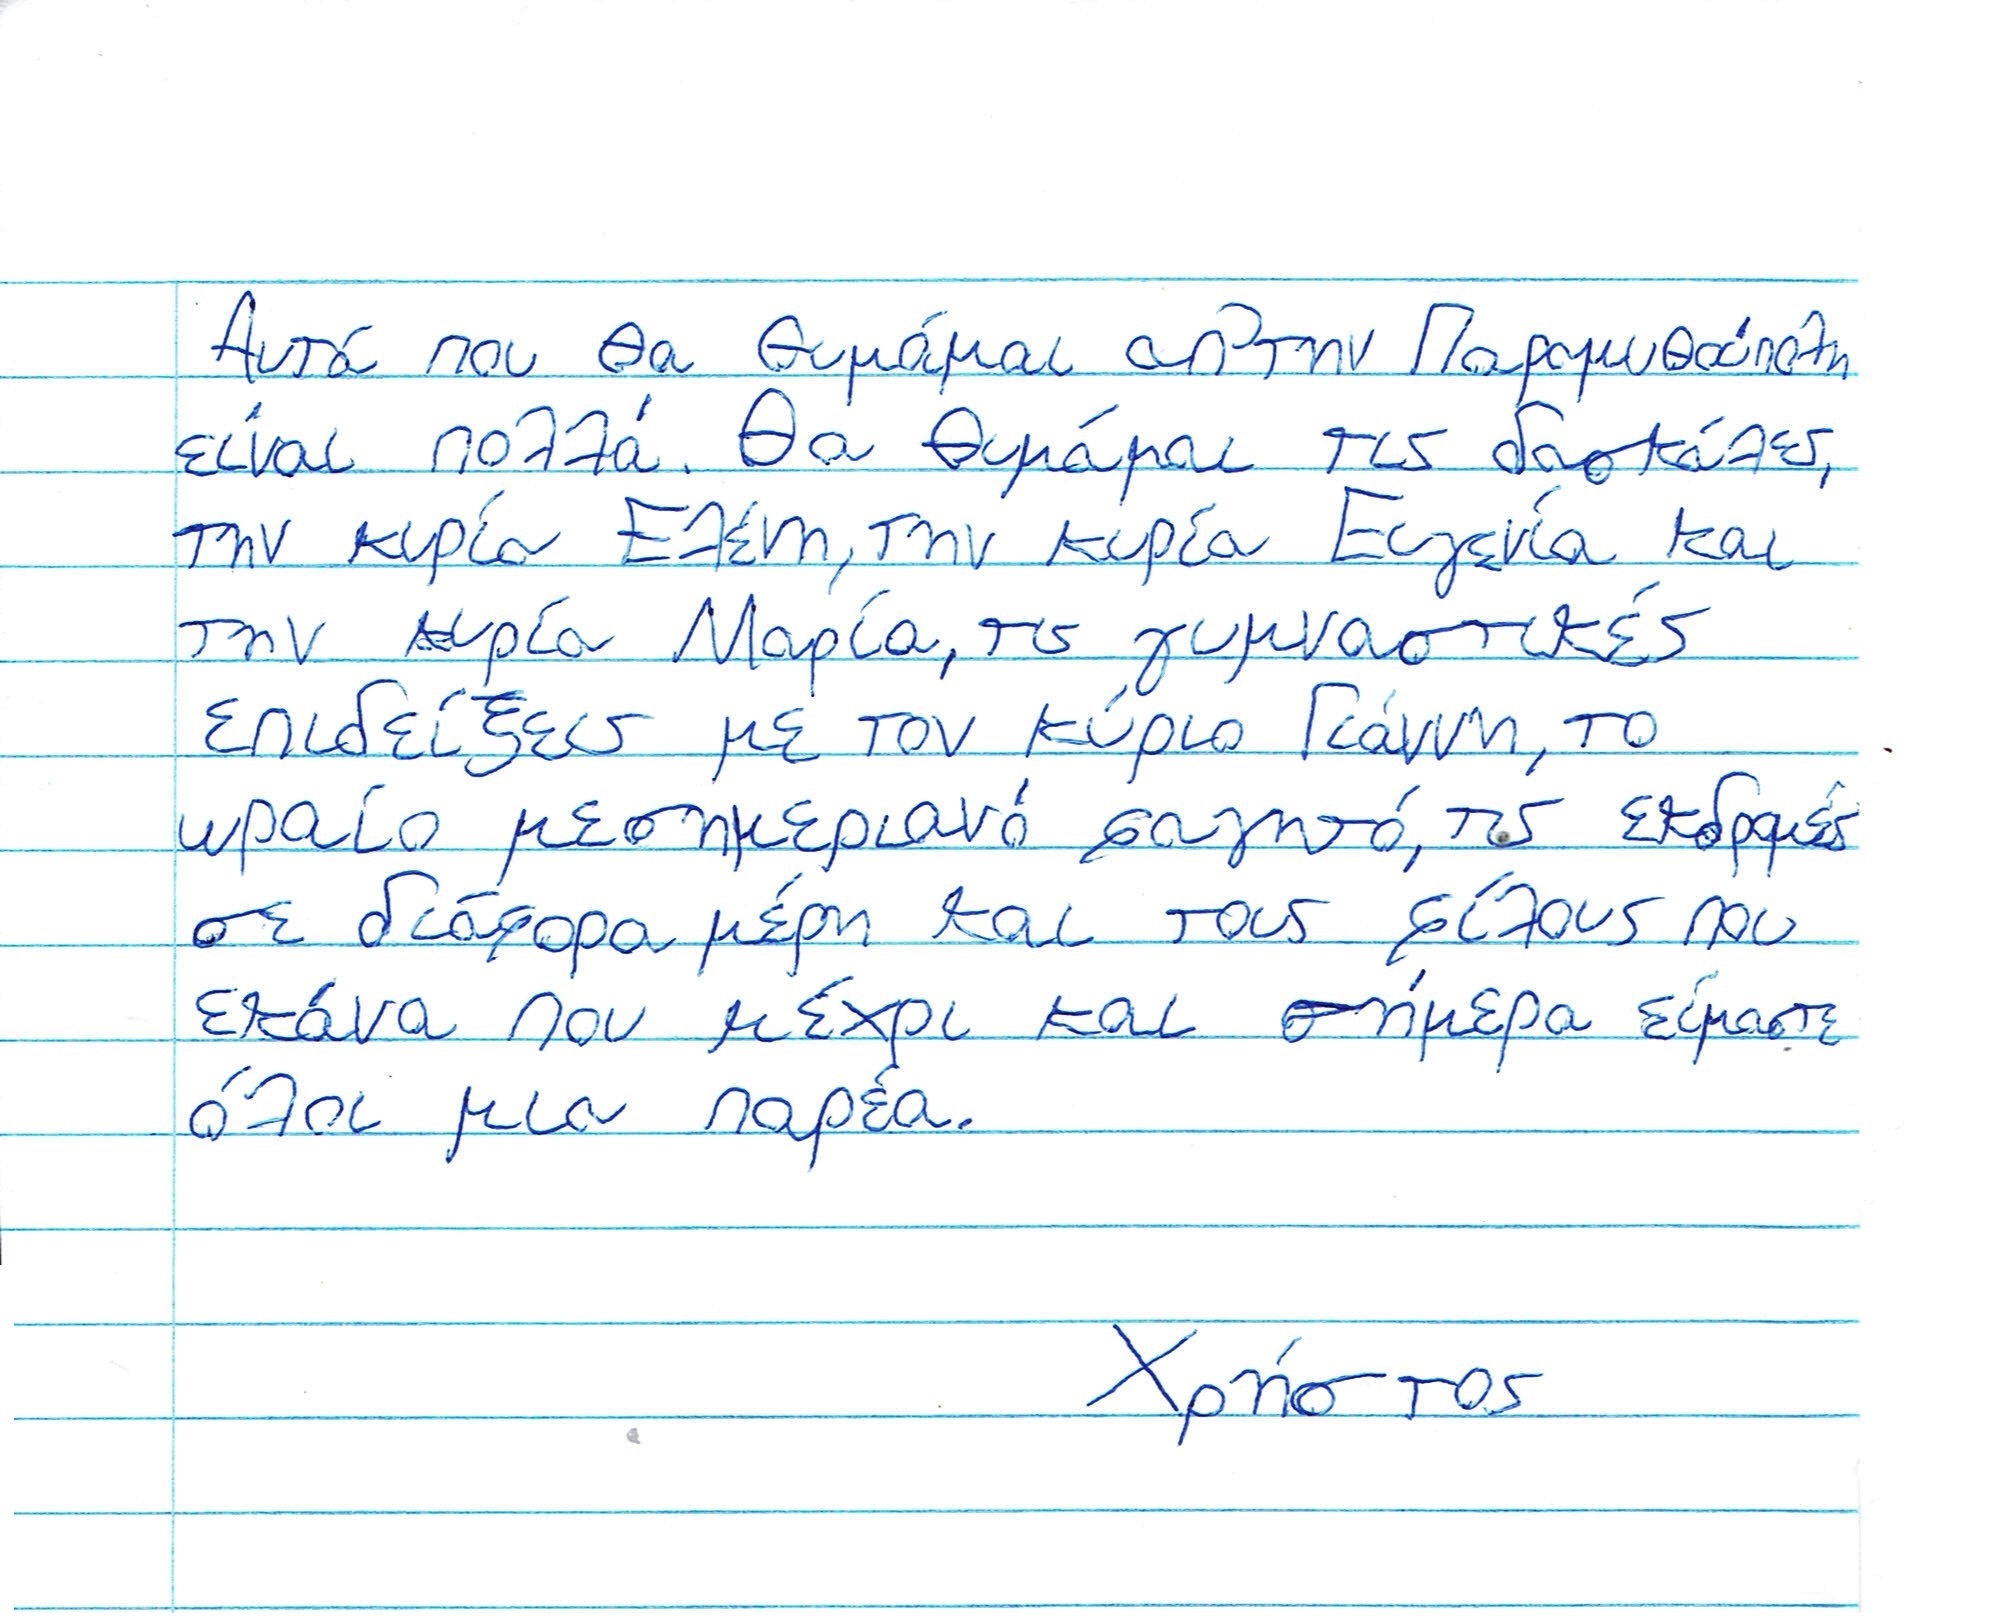 Αυτά που θα θυμάμαι απ' την Παραμυθούπολη
είναι πολλά. Θα θυμάμαι τις δασκάλες,
την κυρία Ελένη, την κυρία Ευγενία και
την κυρία Μαρία, τις γυμναστικές
επιδείξεις με τον κύριο Γιάννη, το
ωραίο μεσημεριανό φαγητό, τις εκδρομές
σε διάφορα μέρη και τους φίλους που
εκάνα που μέχρι και σήμερα είμαστε
όλοι μια παρέα.
Χρήστος